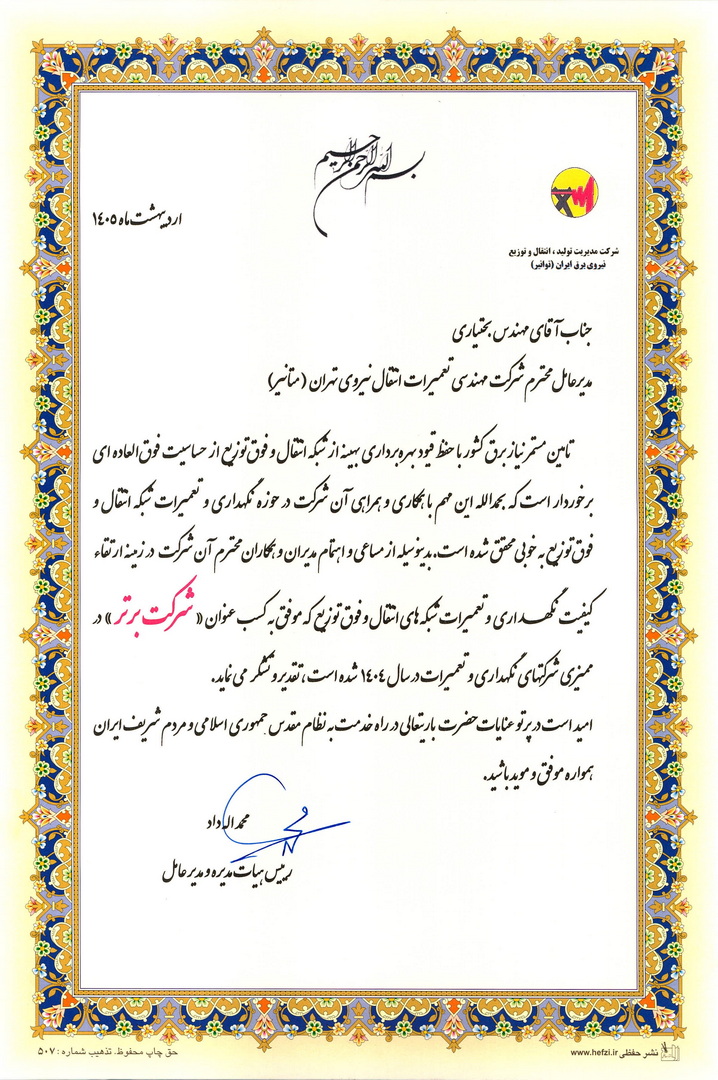 بسم الله الرحمن الرحیم
اردیبهشت ماه ۱۴۰۵
شرکت مدیریت تولید، انتقال و توزیع
نیروی برق ایران (توانیر)
جناب آقای مهندس بختیاری
مدیرعامل محترم شرکت مهندسی تعمیرات انتقال نیروی تهران (متانیر)
تامین مستمر نیاز برق کشور با حفظ قیود بهره برداری بهینه از شبکه انتقال و فوق توزیع از حساسیت فوق العاده ای
برخوردار است که بحمدالله این مهم با همکاری و همراهی آن شرکت در حوزه نگهداری و تعمیرات شبکه انتقال و
فوق توزیع به خوبی محقق شده است. بدینوسیله از مساعی و اهتمام مدیران و همکاران محترم آن شرکت در زمینه ارتقاء
کیفیت نگهداری و تعمیرات شبکه های انتقال و فوق توزیع که موفق به کسب عنوان « شرکت برتر » در
ممیزی شرکتهای نگهداری و تعمیرات در سال ۱۴۰۴ شده است، تقدیر و تشکر می نماید.
امید است در پرتو عنایات حضرت باریتعالی در راه خدمت به نظام مقدس جمهوری اسلامی و مردم شریف ایران
همواره موفق و موید باشید.
محمد اله داد
رییس هیات مدیره و مدیرعامل
نشر حفظی www.hefzi.ir
حق چاپ محفوظ. تذهیب شماره: ۵۰۷